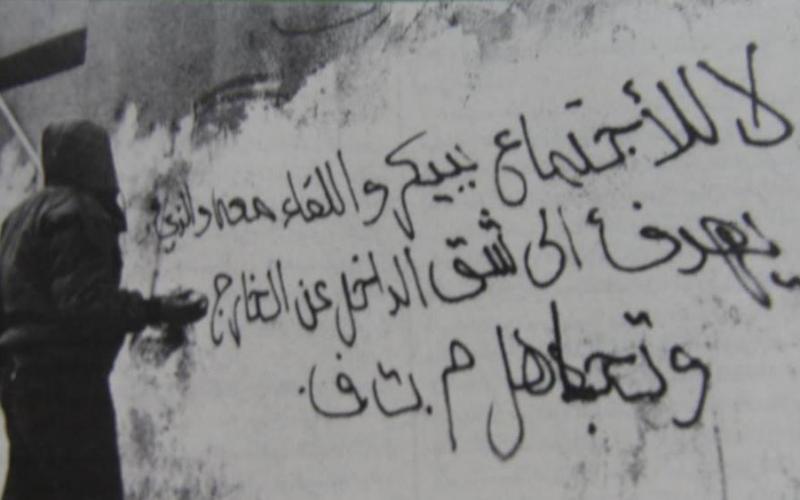 لا للأجتماع ببيكر واللقاء معه والذي
يهدف الى شق الداخل عن الخارج
وتجاهل م.ت.ف.